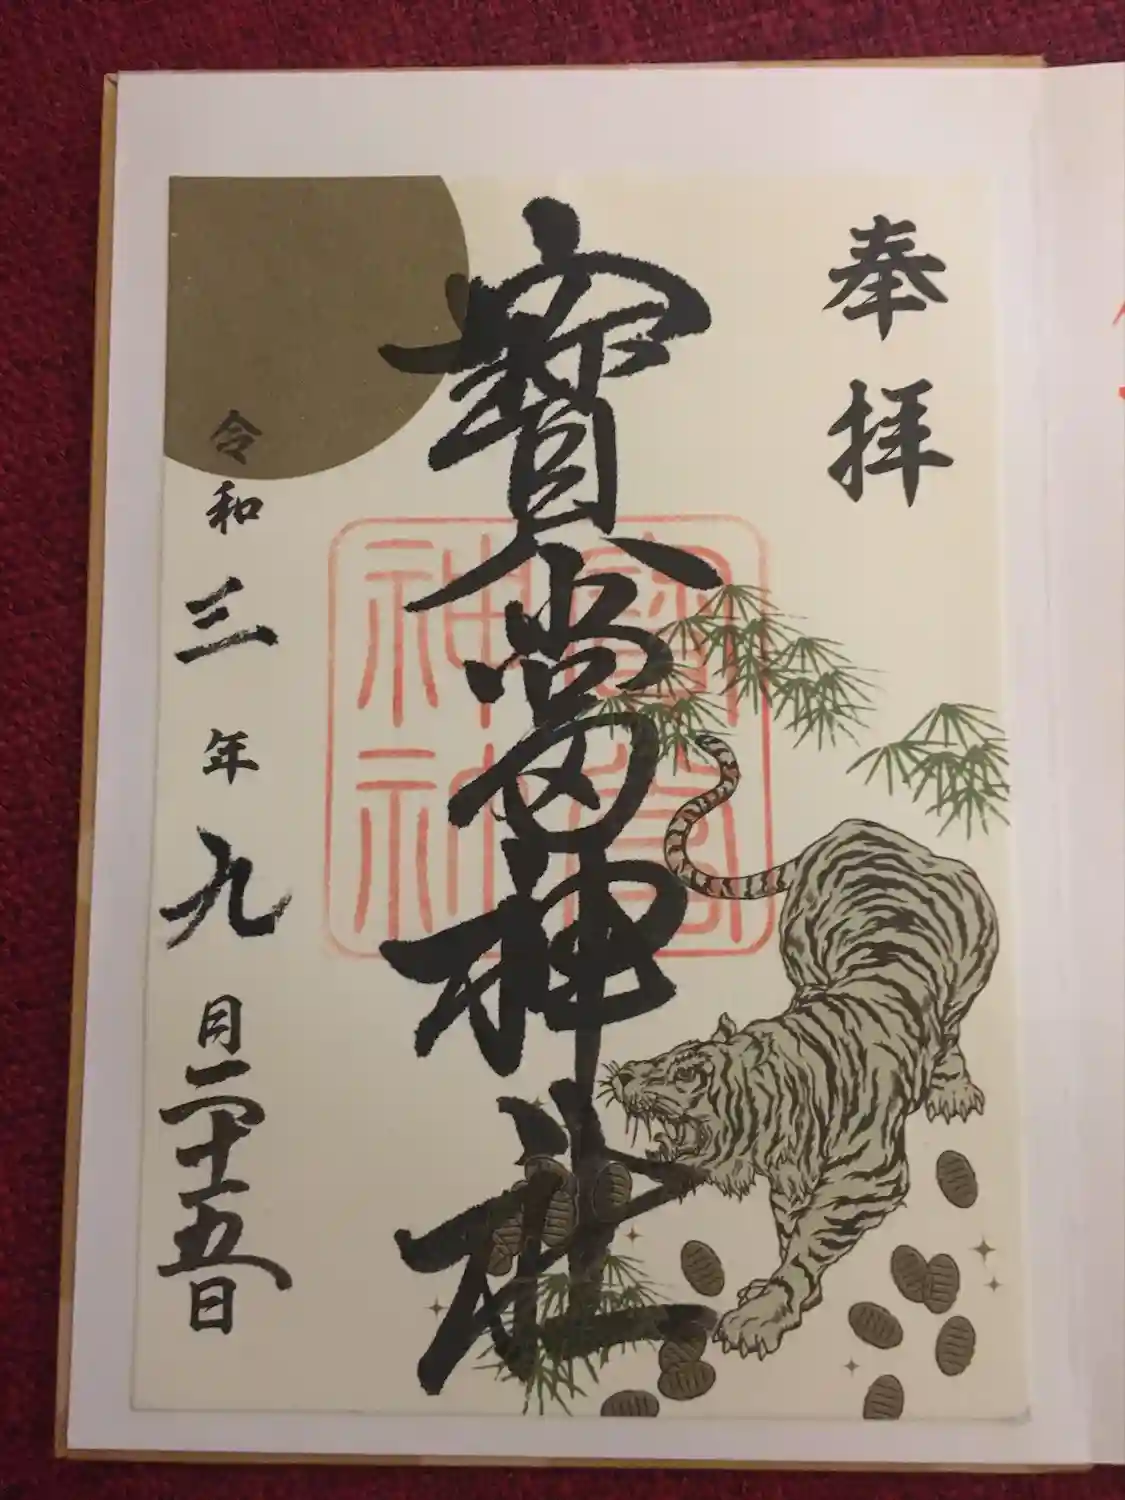 奉拝
寶當神社
寶當
神社
令和三年九月二十五日